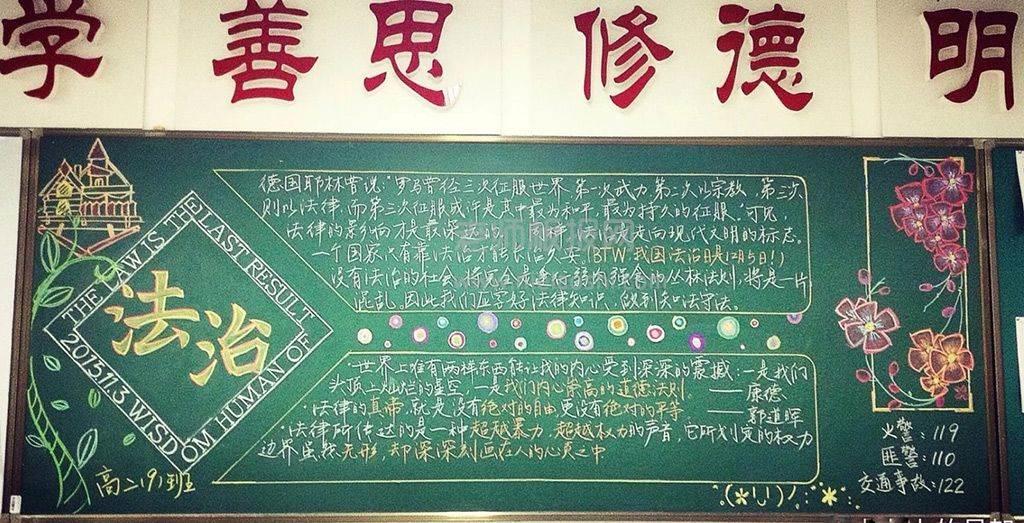 学善思修德明
德国耶林曾说:“罗马曾经三次征服世界,第一次武力,第二次以宗教,第三次
则以法律,而第三次征服或许是其中最为和平,最为持久的征服。”可见,
法律的影响才是最深远的。同样,法治是走向现代文明的标志。
一个国家只有靠法治才能长治久安。(BTW 我国法治日是12月5日!)
没有法治的社会,将完全是遵行弱肉强食的丛林法则,将是一片
混乱。因此我们应掌好法律知识,做到知法守法。
THE LAW IS THE LAST RESULT
OF HUMAN WISDOM
2015.11.3
法治
“世界上唯有两样东西能让我的内心受到深深的震撼:一是我们
头顶上灿烂的星空,一是我们内心崇高的道德法则 ——康德
·法律的真帝,就是没有绝对的自由,更没有绝对的平等 ——郭道晖
·法律所传达的是一种超越暴力,超越权力的声音,它所划定的权力
边界虽然无形,却深深刻画在人的心灵之中
高二(9)班
火警:119
匪警:110
交通事故:122